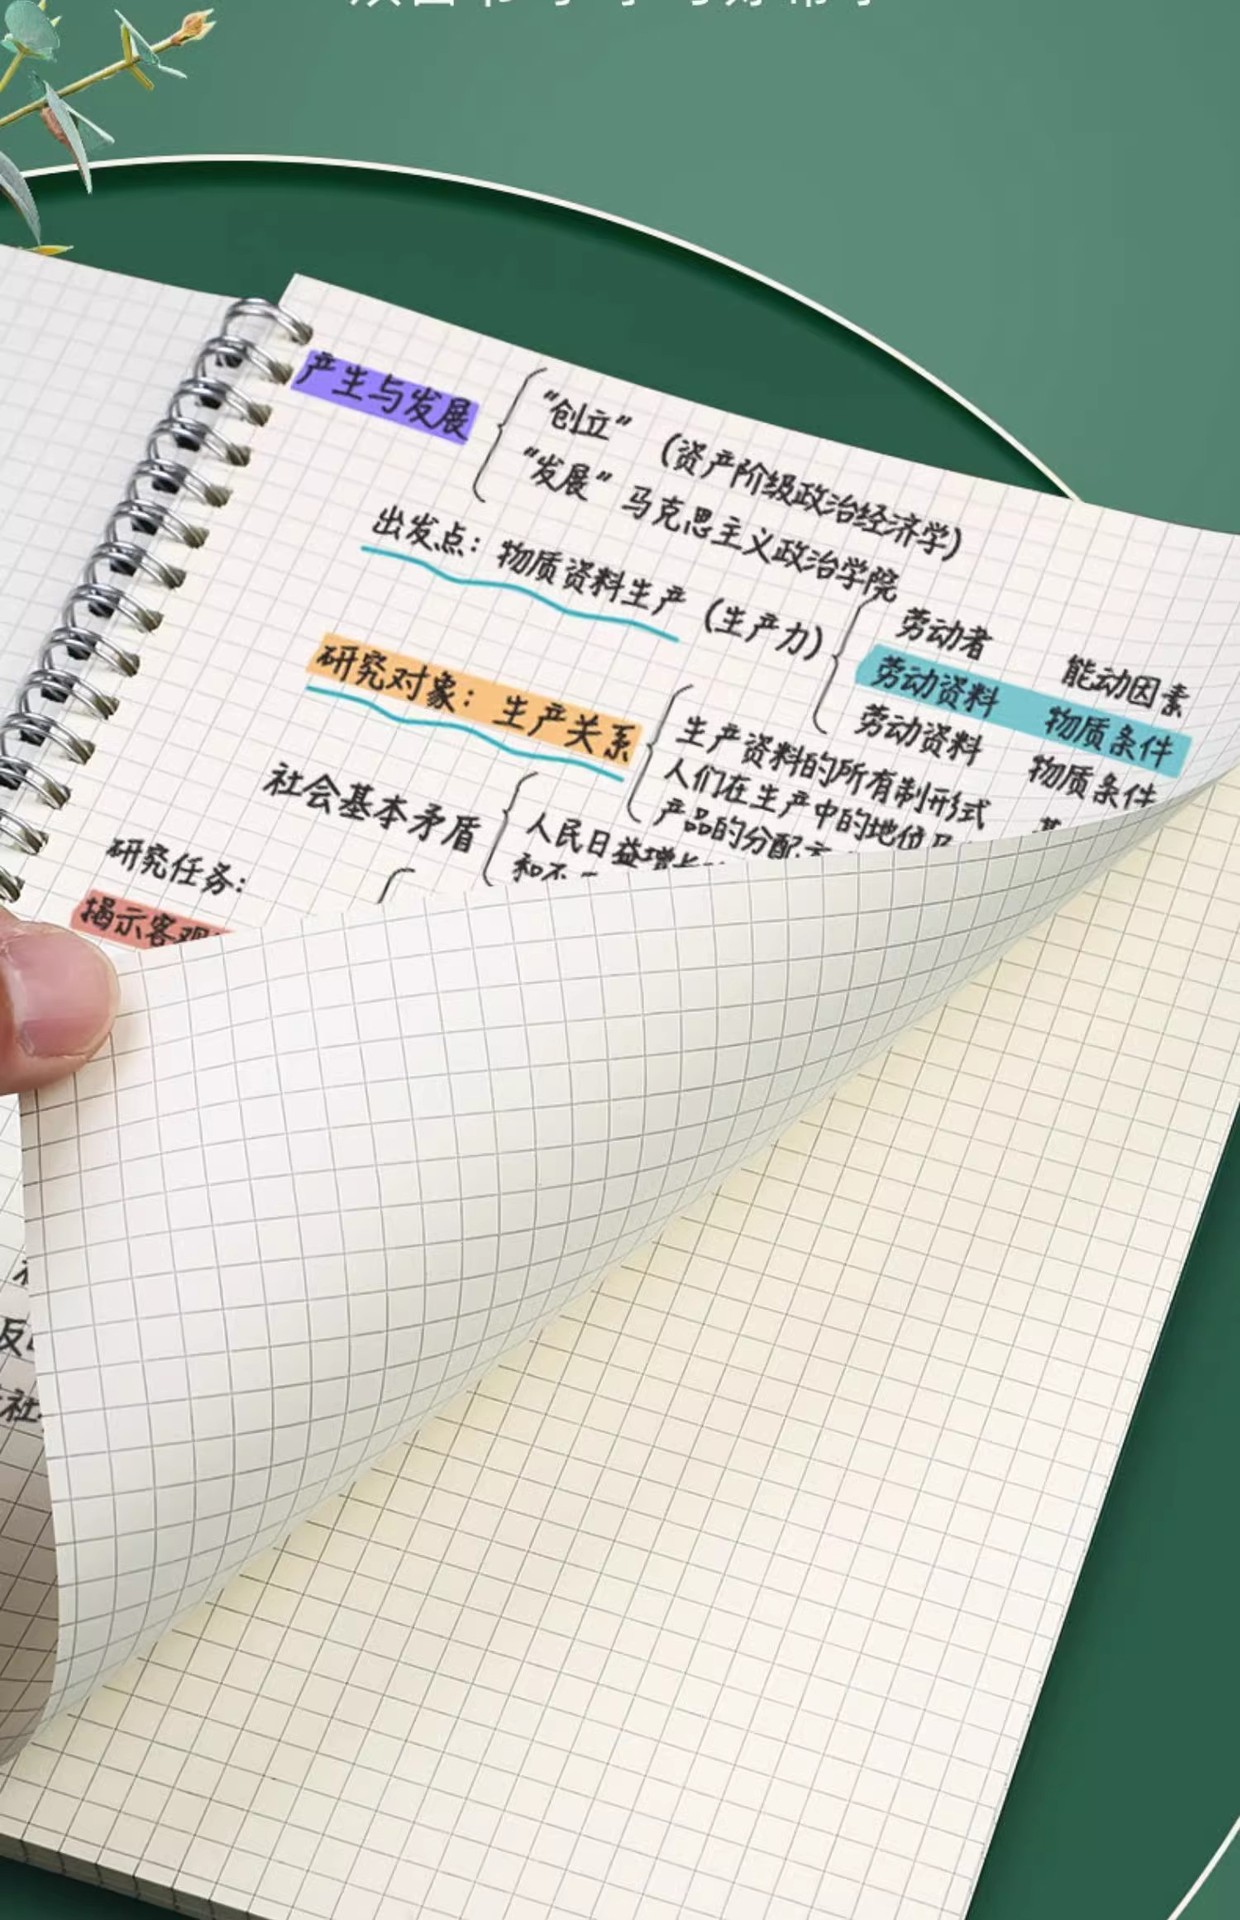 产生与发展
“创立” (资产阶级政治经济学)
“发展” 马克思主义政治学院
出发点: 物质资料生产 (生产力)
劳动者 能动因素
劳动资料 物质条件
劳动资料 物质条件
研究对象: 生产关系
生产资料的所有制形式
人们在生产中的地位及
产品的分配方
社会基本矛盾
人民日益增长
和不
研究任务:
揭示客观